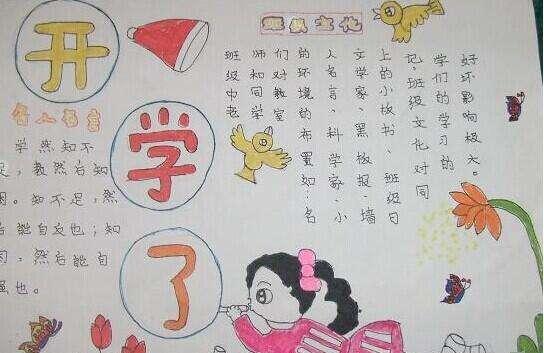 开
学
了
名人名言
学然知不
足，教然后知
困。知不足，然
后能自文也；知
困，然后能自
强也。
班级文化
班级中老
师和同学
们对教室
的环境的布置如：名
人名言、科学家、小
文学家、黑板报、墙
上的小板书、班级日
记。班级文化对同
学们的学习的
好坏影响极大。